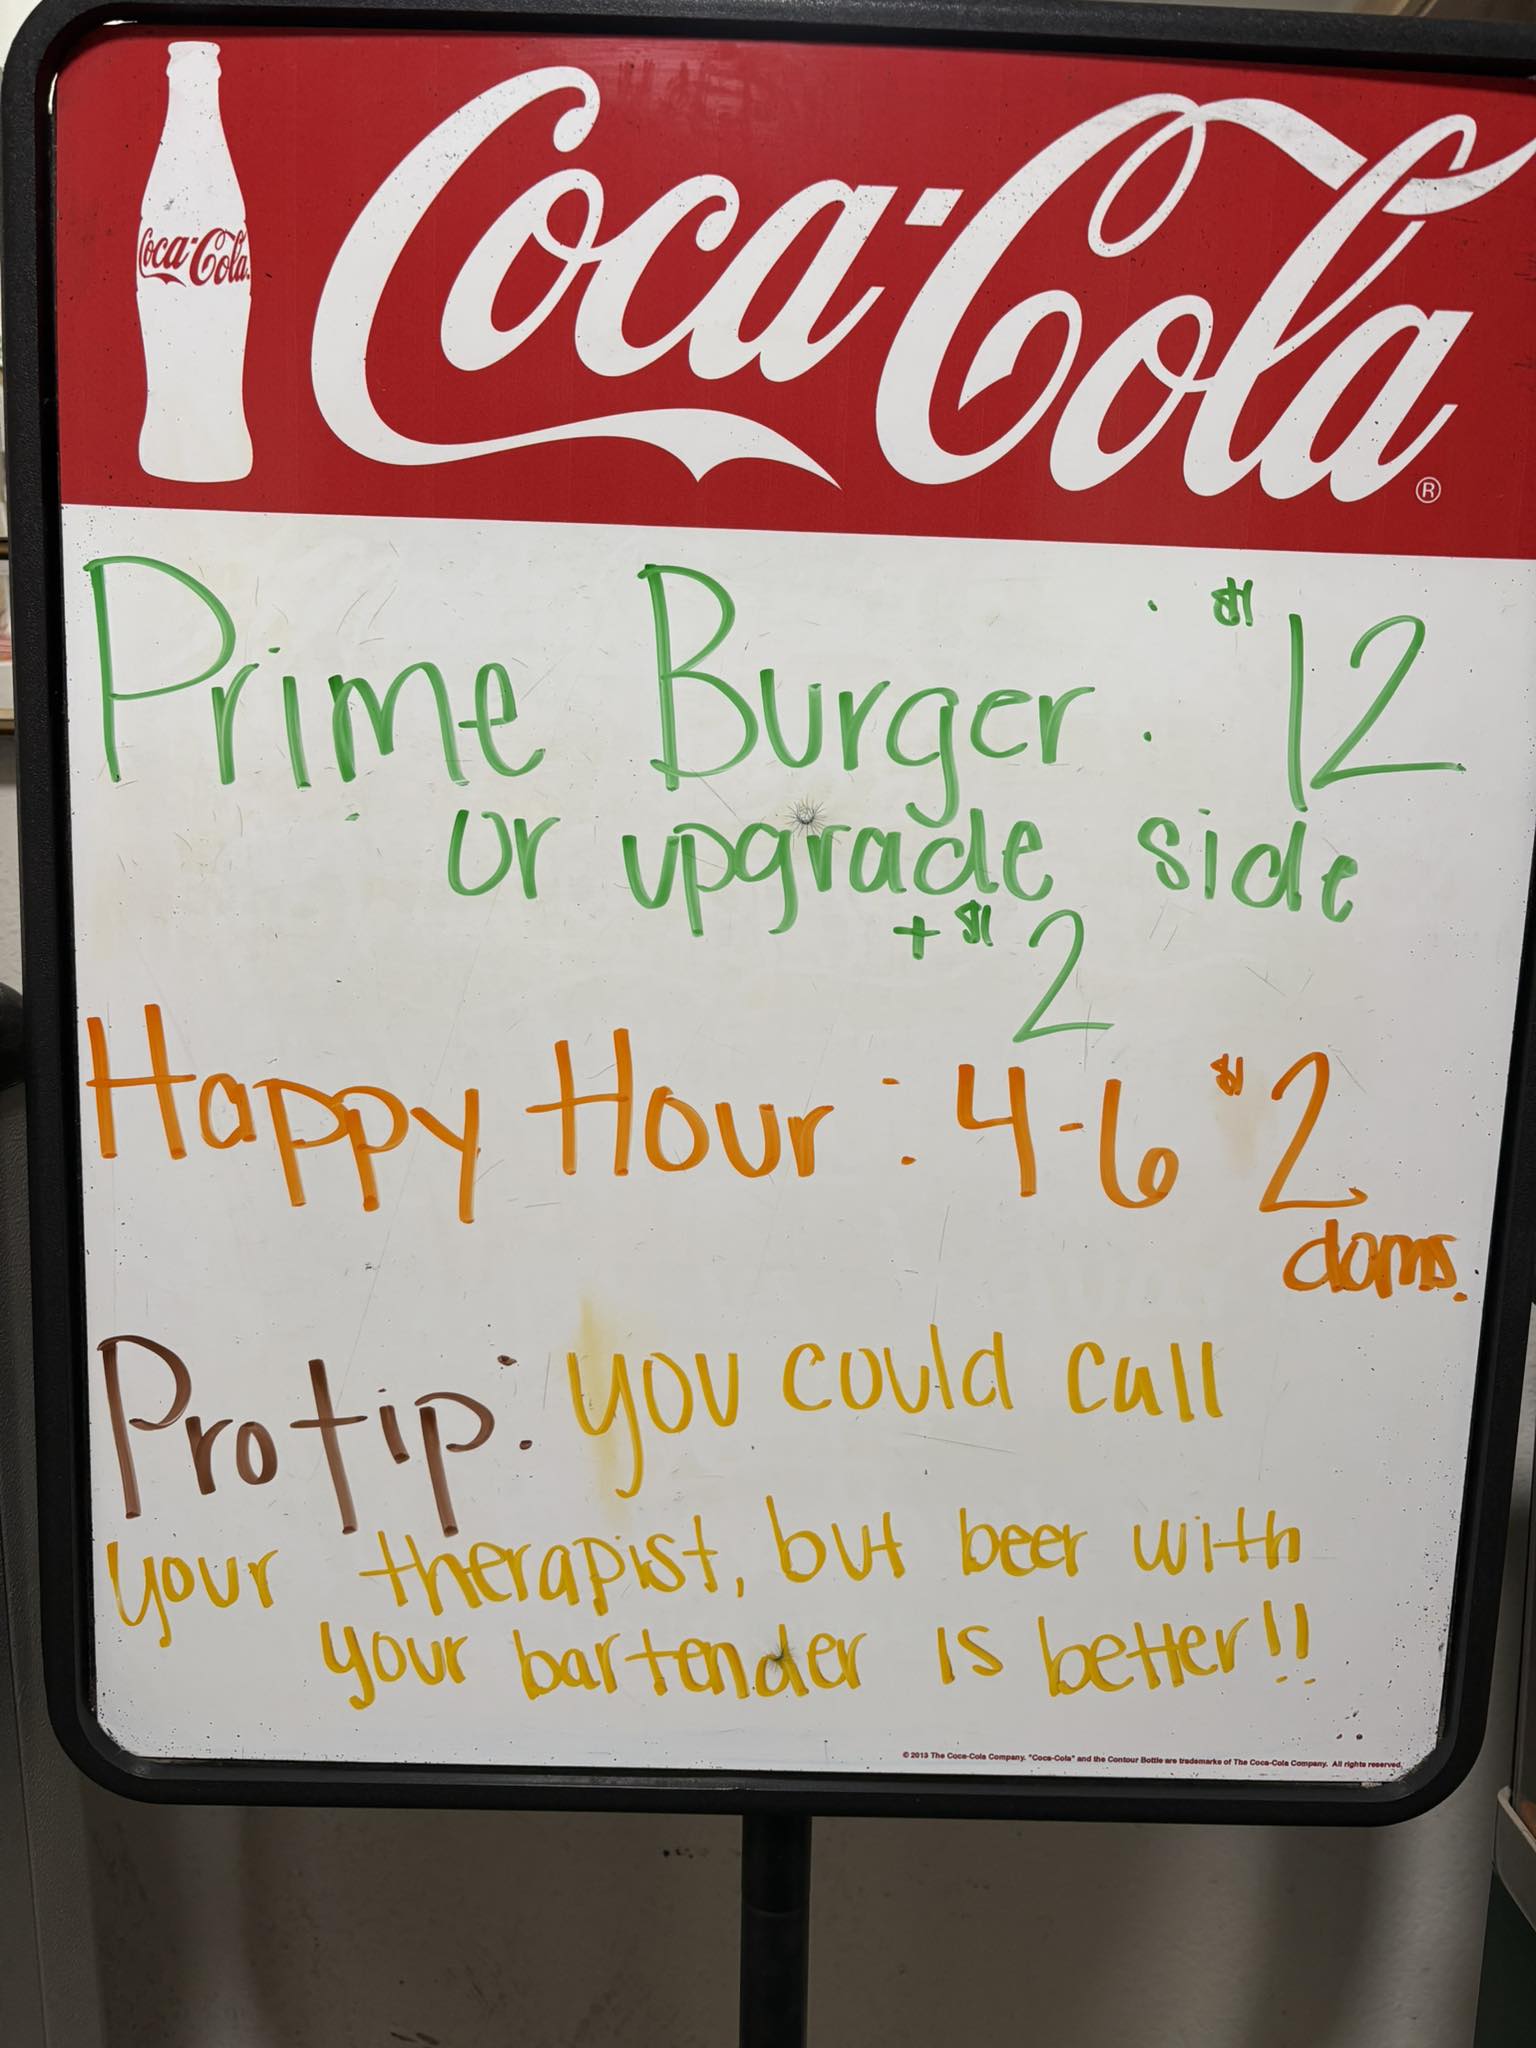 Coca-Cola
Coca-Cola®
Prime Burger: $12
or upgrade side
+ $2
Happy Hour: 4-6 $2
doms.
Protip: you could call
your therapist, but beer with
your bartender is better!!
© 2013 The Coca-Cola Company. "Coca-Cola" and the Contour Bottle are trademarks of The Coca-Cola Company. All rights reserved.